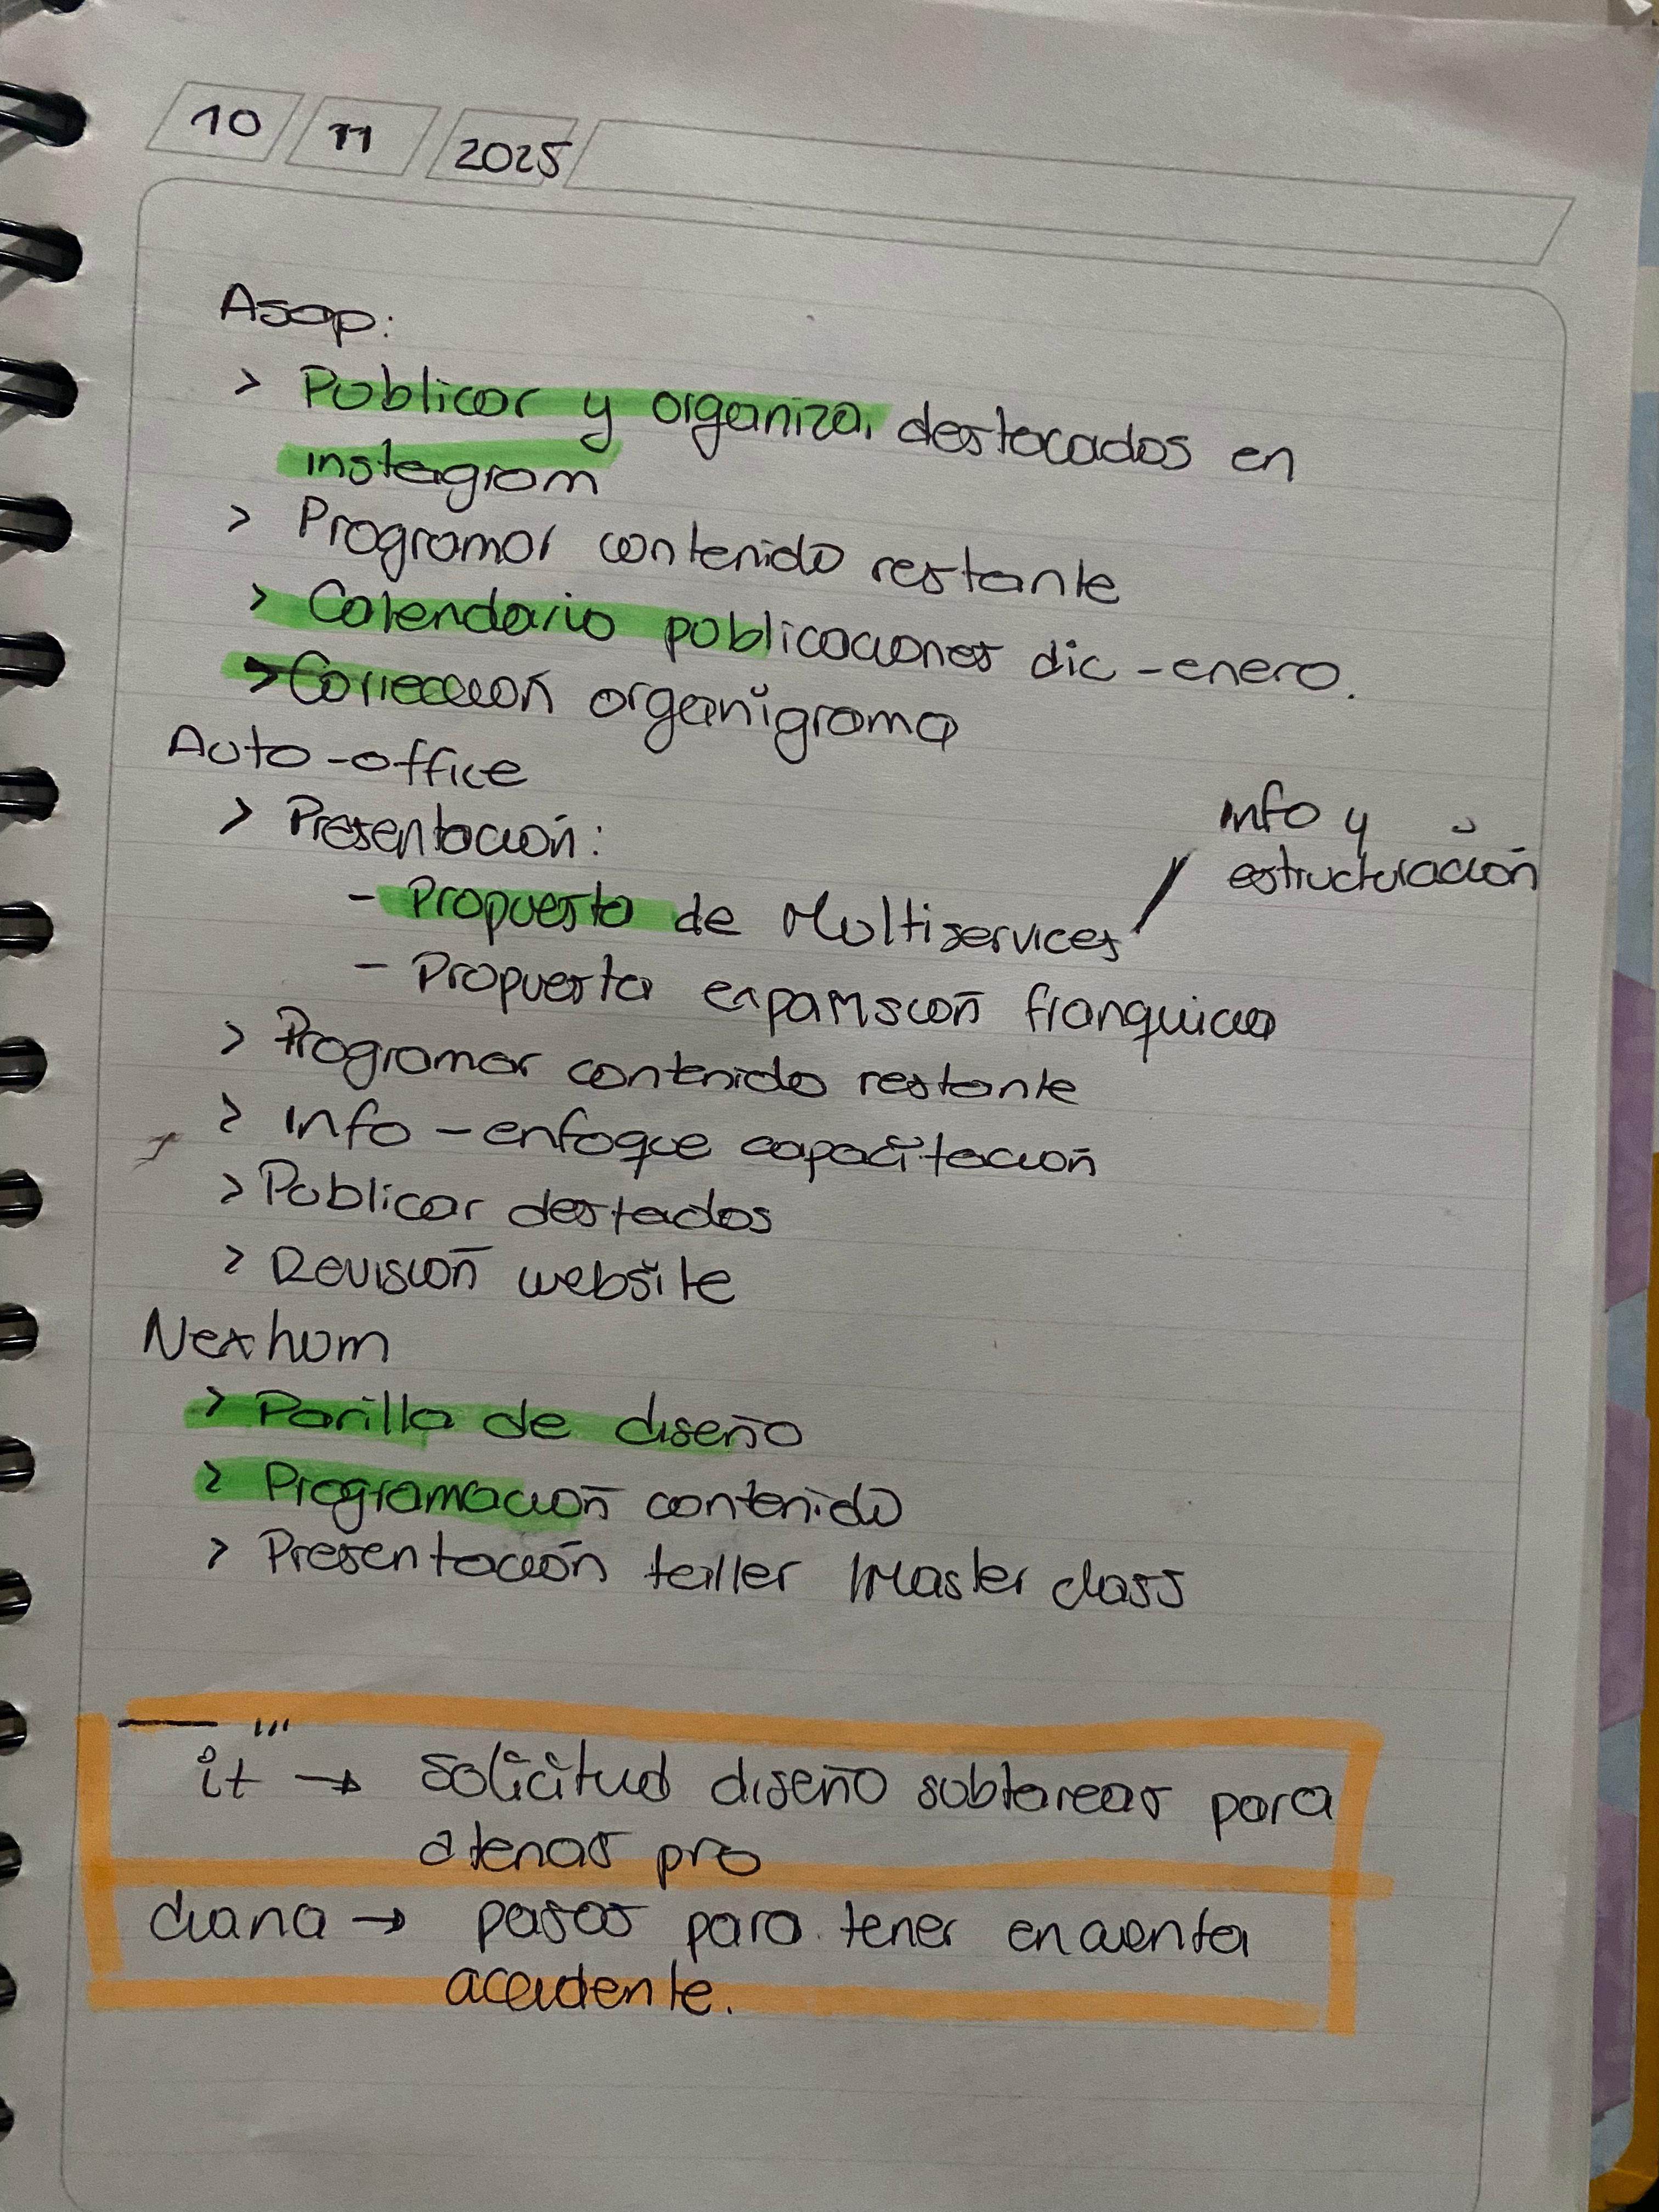 10 11 2025
Asap:
> Publicar y organizar destacados en
instagram
> Programar contenido restante
> Calendario publicaciones dic - enero.
> Corrección organigrama
Auto-office
> Presentación:
info y
estructuración
- Propuesta de Multiservices /
- Propuesta expansión franquicia
> Programar contenido restante
> Info - enfoque capacitación
> Publicar destados
> Revisión website
Nexhum
> Parilla de diseño
> Programación contenido
> Presentación taller Master class
it → solicitud diseño subtareas para
atenas pro
diana → pasos para tener en cuenta
accidente.